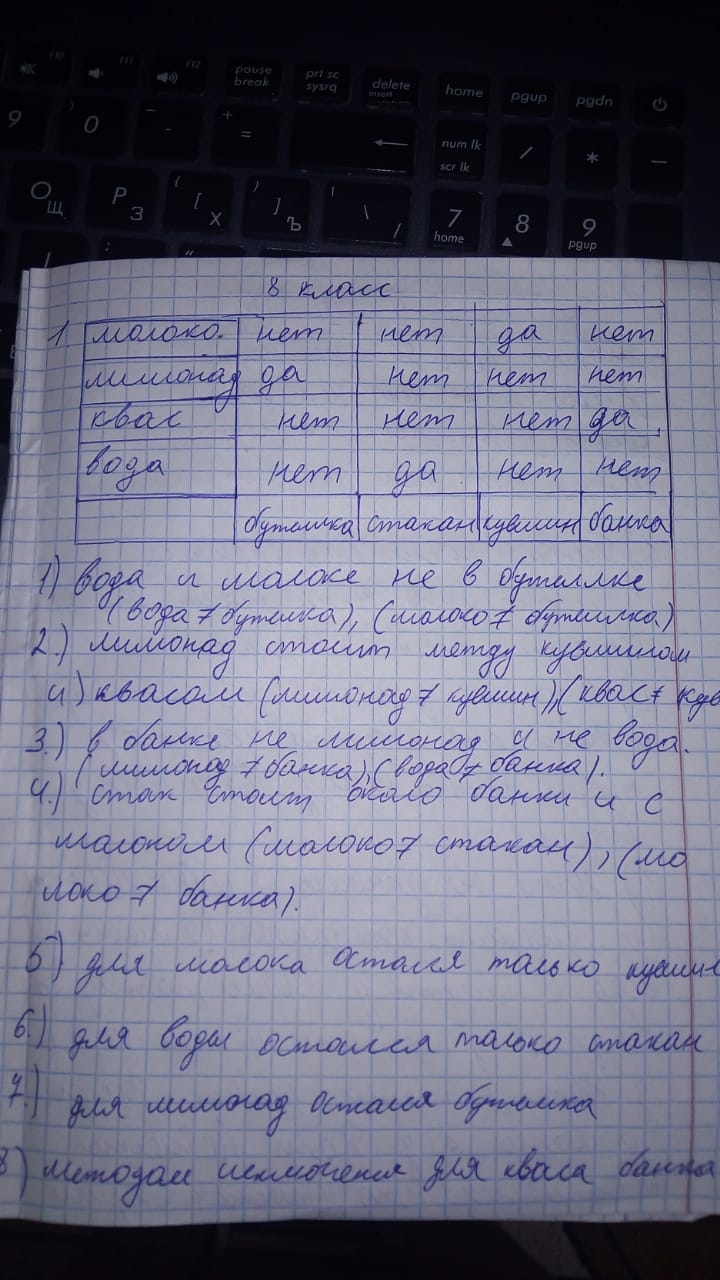 F10 F11 F12 pause break prt sc sysrq delete insert home pgup pgdn
9 ) 0 - - + = ← num lk scr lk / * -
О Щ Р З ( [ Х ) ] Ъ ! \ / 7 home 8 ▲ 9 pgup
8 класс
1 молоко. нет нет да нет
лимонад да нет нет нет
квас нет нет нет да
вода нет да нет нет
бутылка стакан кувшин банка
1) вода и молоке не в бутыллке
(вода ≠ бутылка), (молоко ≠ бутылка)
2.) лимонад стоит между кувшином
и) квасом (лимонад ≠ кувшин), (квас ≠ кув
3.) в банке не лимонад и не вода.
(лимонад ≠ банка), (вода ≠ банка).
4.) стак стоит около банки и с
молоком (молоко ≠ стакан), (мо
локо ≠ банка).
5) для молока остался только кувшин
6.) для воды остался только стакан
7.) для лимонад остался бутылка
8) методом исключения для кваса банка